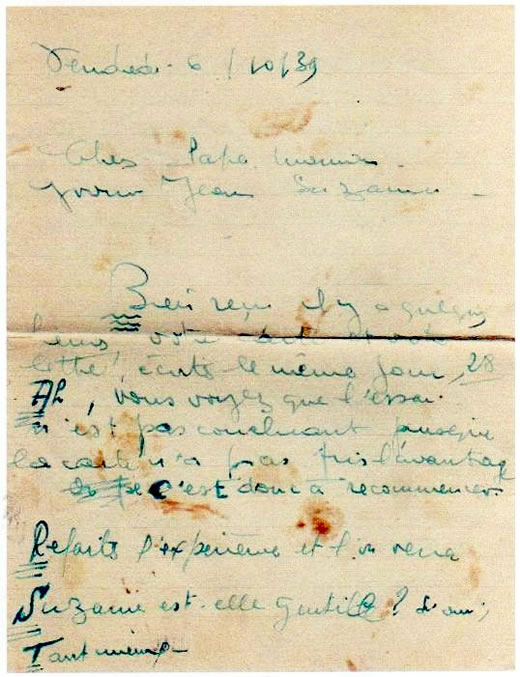 Vendredi 6/10/39
Chers Papa maman
Yvonne Jean Suzanne
Bien reçu il y a quelques
heures votre carte et votre
lettre, écrits le même jour, 28
Ah, vous voyez que l'essai
n'est pas concluant puisque
la carte n'a pas pris l'avantage
c'est donc à recommencer
Refaits l'expérience et l'on verra
Suzanne est-elle gentille? si oui,
Tant mieux